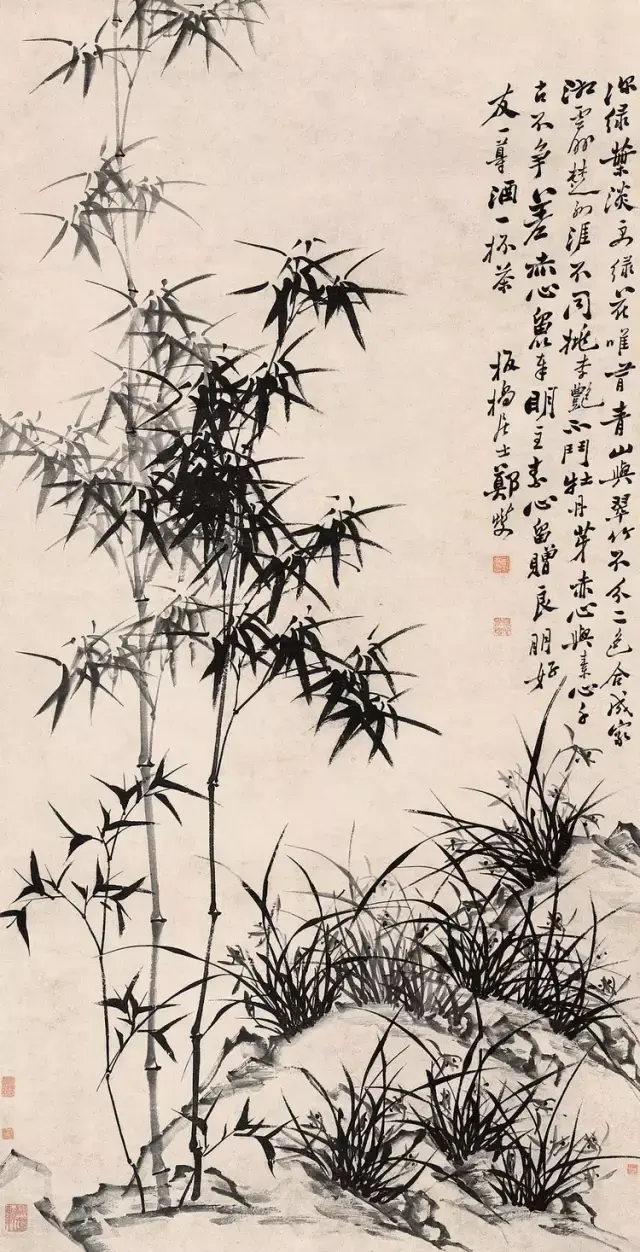 深綠葉淡綠花唯青山與翠竹不分二色合成家
湘雲楚江涯不同桃李艷不鬥牡丹芽赤心與素心千
古不爭差赤心留奉明主素心留贈良朋好
友一尊酒一杯茶 板橋居士鄭燮